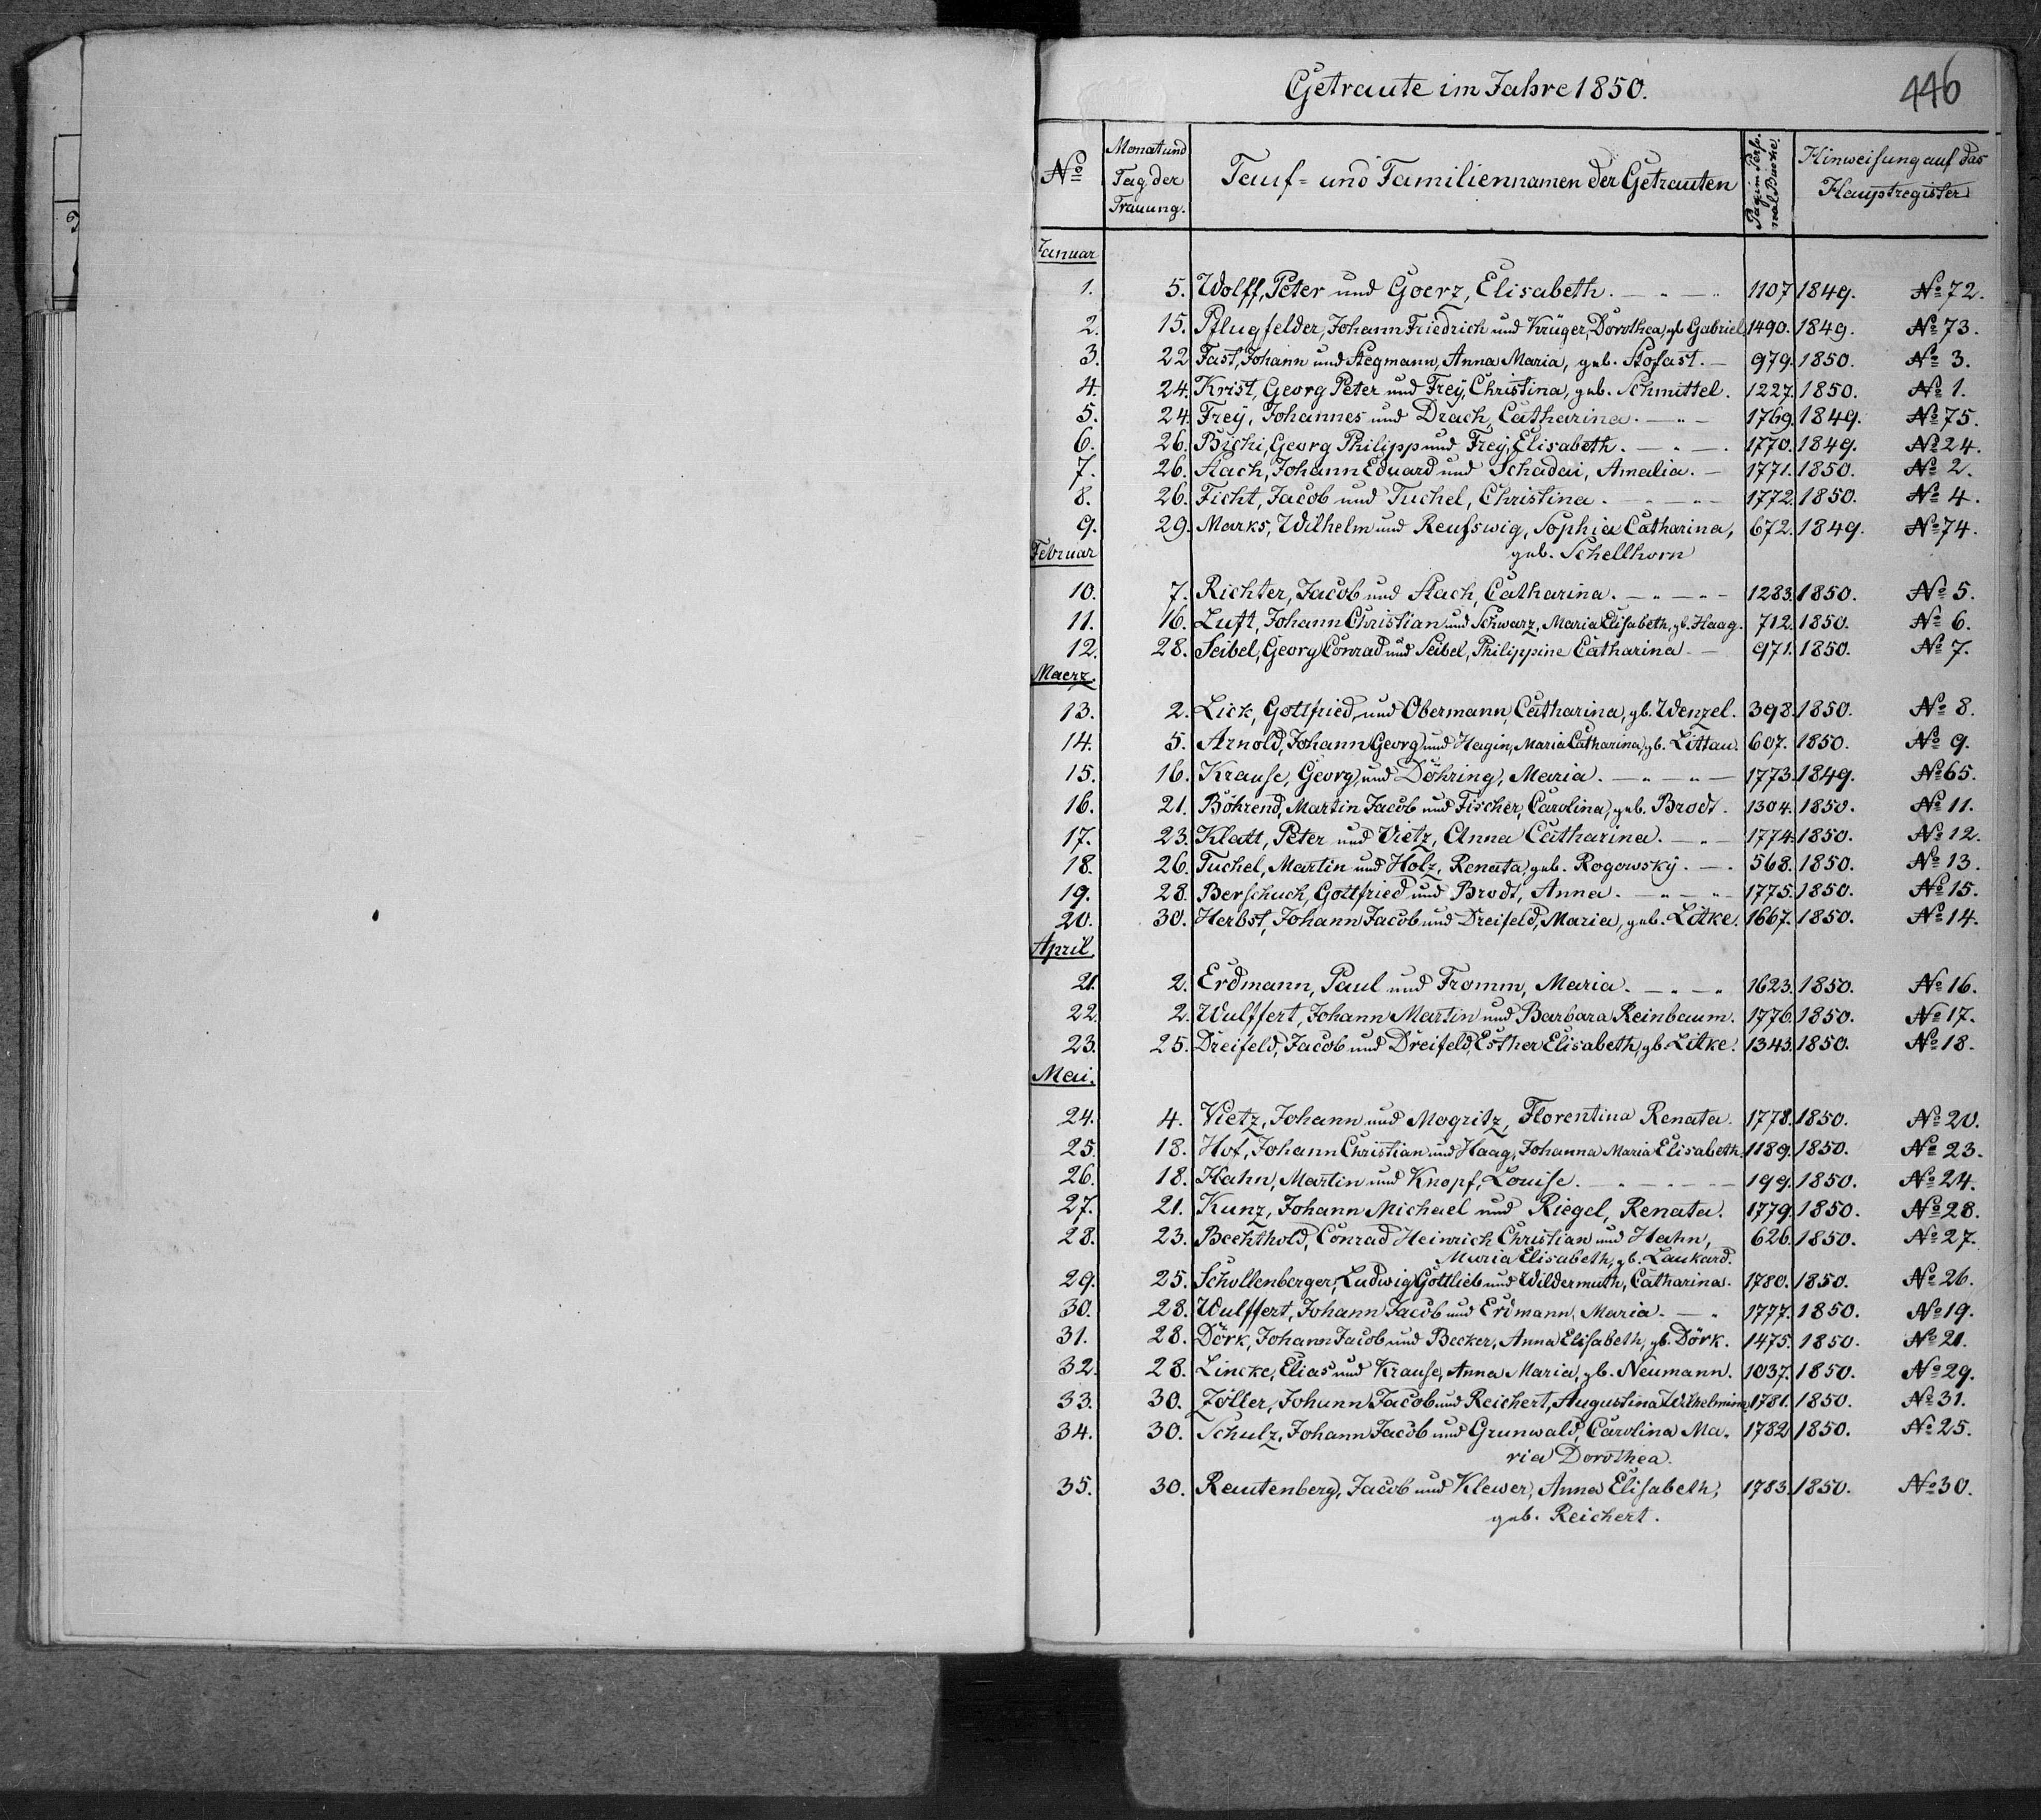 Getraute im Jahre 1850.
446
No Monat und Tag der Trauung. Tauf- und Familiennamen der Getrauten Pag. im Perso- nal Buche. Hinweisung auf das Hauptregister
Januar
1. 5. Wolff, Peter und Goerz, Elisabeth. 1107 1849. No 72.
2. 15. Pflugfelder, Johann Friedrich und Krüger, Dorothea, gb Gabriel 1490. 1849. No 73.
3. 22 Fast, Johann und Stegmann, Anna Maria, geb. Stofast. 979. 1850. No 3.
4. 24. Krist, Georg Peter und Frey, Christina, geb. Schmittel. 1227. 1850. No 1.
5. 24. Frey, Johannes und Drach, Catharina. 1769. 1849. No 75.
6. 26. Bichi, Georg Philipp und Frey, Elisabeth. 1770. 1849. No 24.
7. 26. Stach, Johann Eduard und Schadai, Amalia. 1771. 1850. No 2.
8. 26. Ficht, Jacob und Tuchel, Christina. 1772. 1850. No 4.
9. 29. Marks, Wilhelm und Reufswig, Sophia Catharina, 672. 1849. No 74.
geb. Schellhorn
Februar
10. 7. Richter, Jacob und Stach, Catharina. 1283. 1850. No 5.
11. 16. Luft, Johann Christian und Schwarz, Maria Elisabeth, gb. Haag. 712. 1850. No 6.
12. 28. Seibel, Georg Conrad und Seibel, Philippine Catharina 971. 1850. No 7.
Maerz.
13. 2. Lick, Gottfried, und Obermann, Catharina, gb. Wenzel. 398. 1850. No 8.
14. 5. Arnold, Johann Georg und Hagin, Maria Catharina, gb. Littau. 607. 1850. No 9.
15. 16. Krause, Georg und Döhring, Maria. 1773. 1849. No 65.
16. 21. Böhrend, Martin Jacob und Fischer, Carolina, geb. Brodt. 1304. 1850. No 11.
17. 23. Klatt, Peter und Vietz, Anna Catharina. 1774. 1850. No 12.
18. 26. Tuchel, Martin und Holz, Renata, geb. Rogowsky. 568. 1850. No 13.
19. 28. Berschuck, Gottfried und Brodt, Anna. 1775. 1850. No 15.
20. 30. Herbst, Johann Jacob und Dreifeld, Maria, geb. Litke. 1667. 1850. No 14.
April.
21. 2. Erdmann, Paul und Fromm, Maria. 1623. 1850. No 16.
22. 2. Wulffert, Johann Martin und Barbara Reinbaum. 1776. 1850. No 17.
23. 25. Dreifeld, Jacob und Dreifeld, Esther Elisabeth, gb. Litke. 1343. 1850. No 18.
Mai.
24. 4. Vietz, Johann und Mogritz, Florentina Renata. 1778. 1850. No 20.
25. 18. Hof, Johann Christian und Haag, Johanna Maria Elisabeth. 1189. 1850. No 23.
26. 18. Hahn, Martin und Knopf, Louise. 199. 1850. No 24.
27. 21. Kunz, Johann Michael und Riegel, Renata. 1779. 1850. No 28.
28. 23. Bechthold, Conrad Heinrich Christian und Hahn, 626. 1850. No 27.
Maria Elisabeth, gb. Laukard.
29. 25. Schollenberger, Ludwig Gottlieb und Wildermuth, Catharina. 1780. 1850. No 26.
30. 28. Wulffert, Johann Jacob und Erdmann, Maria. 1777. 1850. No 19.
31. 28. Dörk, Johann Jacob und Becker, Anna Elisabeth, gb. Dörk. 1475. 1850. No 21.
32. 28. Lincke, Elias und Krause, Anna Maria, gb. Neumann. 1037. 1850. No 29.
33. 30. Zöller, Johann Jacob und Reichert, Augustina Wilhelmina. 1781. 1850. No 31.
34. 30. Schulz, Johann Jacob und Grunwald, Carolina Ma- 1782 1850. No 25.
ria Dorothea.
35. 30. Rautenberg, Jacob und Klewer, Anna Elisabeth, 1783. 1850. No 30.
geb. Reichert.